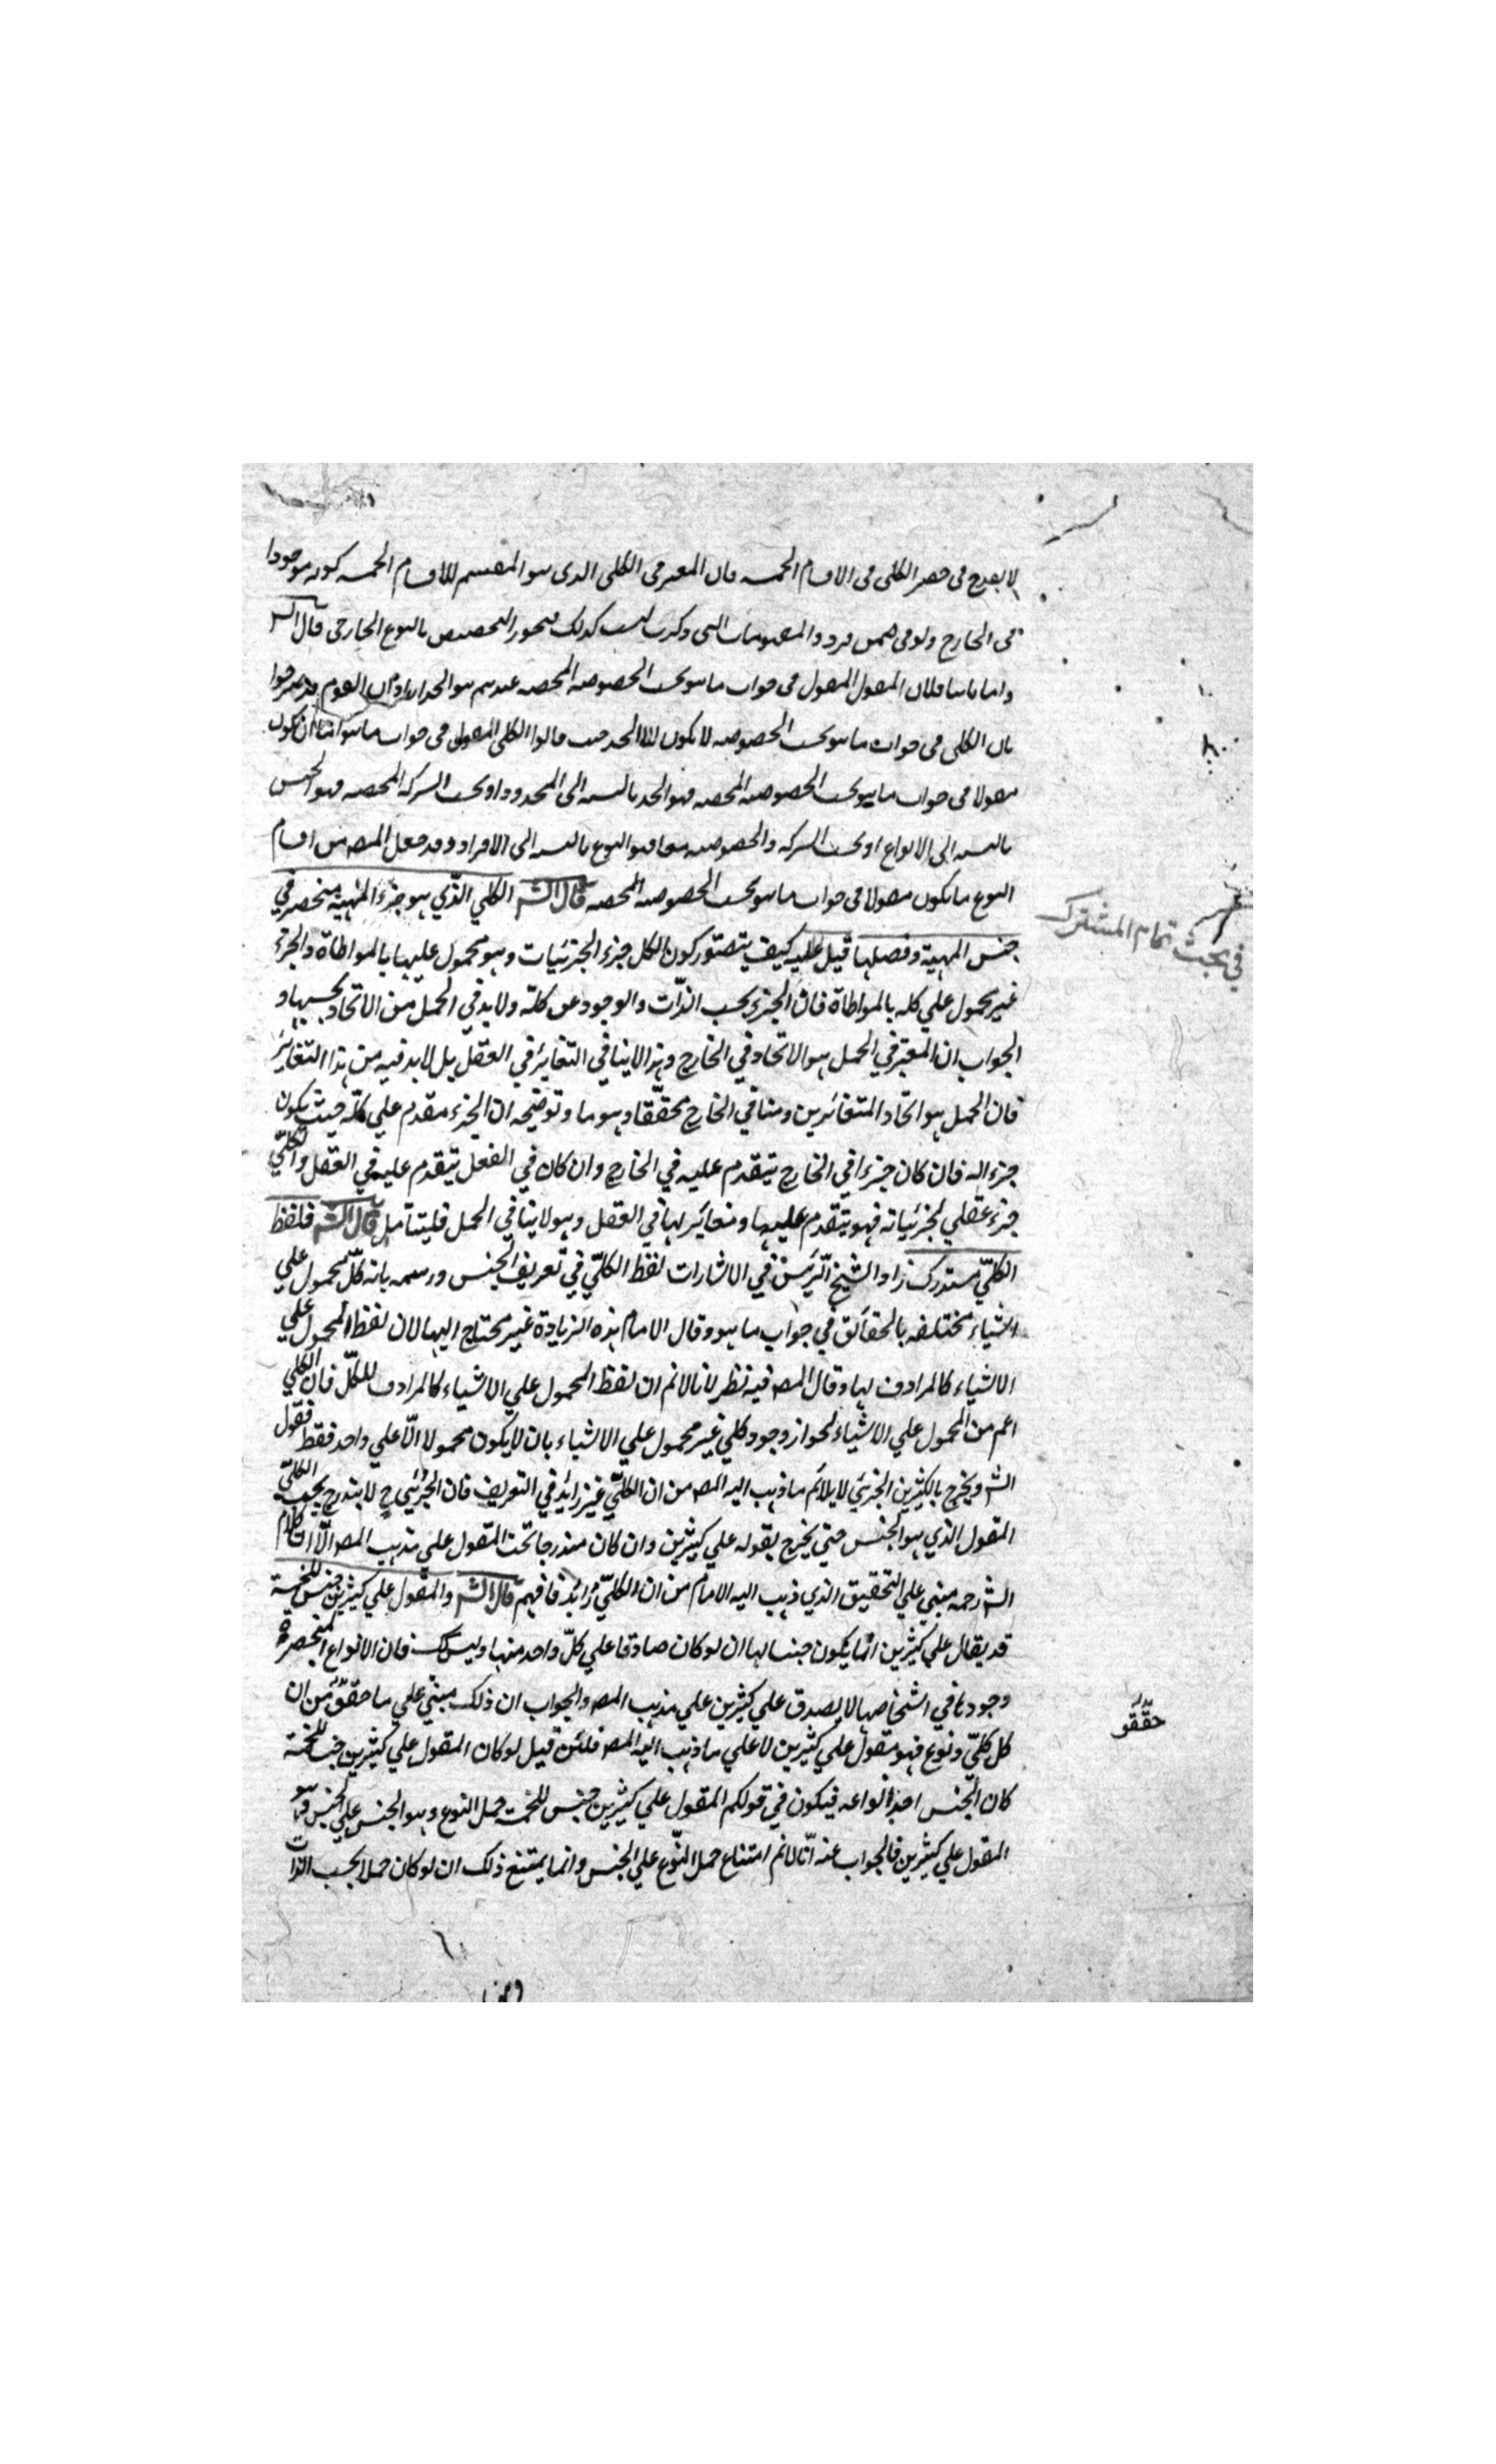 لا يقدح في حصر الكلي في الاقسام الخمسه فان المعتبر في الكلي الذي هو المقسم للاقسام الخمسه كونه موجودا
في الخارج ولو في ضمن فرد والمفهومات التي ذكرت ليست كذلك فيجوز التخصيص بالنوع الخارجي قال الش
واما ثانيا فلان المقول المقول في جواب ما هو بحسب الخصوصيه المحضه عندهم هو الحد اراد ان القوم قد صرحوا
بان الكلي في جواب ما هو بحسب الخصوصيه لا يكون الا الحد حيث قالوا الكلي المقول في جواب ما هو اما ان يكون
مقولا في جواب ما هو بحسب الخصوصيه المحضه فهو الحد بالنسبه الي المحدود او بحسب الشركه المحضه فهو الجنس
بالنسبه الي الانواع او بحسب الشركه والخصوصيه معا فهو النوع بالنسبه الي الافراد وقد جعل المص من اقسام
النوع ما يكون مقولا في جواب ما هو بحسب الخصوصيه المحضه قال الش الكلي الذي هو جزء المهية منحصر في
جنس المهية وفصلها قيل عليه كيف يتصور كون الكل جزء الجزئيات وهو محمول عليها بالمواطاة والجزء
غير محمول علي كله بالمواطاة فان الجزء بحسب الذات والوجود عن كله ولا بد في الحمل من الاتحاد بحسبها و
الجواب ان المعتبر في الحمل هو الاتحاد في الخارج وهذا لا ينافي التغاير في العقل بل لا بد فيه من هذا التغاير
فان الحمل هو اتحاد المتغائرين ومنا في الخارج محققا وهوما وتوضيحه ان الجزء مقدم علي كله حيث يكون
جزء اله فان كان جزءا في الخارج يتقدم عليه في الخارج وان كان في الفعل يتقدم عليه في العقل والكلي
جزء عقلي لجزئياته فهو يتقدم عليها ومغاير لها في العقل وهو لا ينافي الحمل فليتأمل قال الش فلفظ
الكلي مستدرك زاد الشيخ الرئيس في الاشارات لفظ الكلي في تعريف الجنس ورسمه بانه كل محمول علي
اشياء مختلفه بالحقائق في جواب ما هو وقال الامام هذه الزيادة غير محتاج اليها لان لفظ المحمول علي
الاشياء كالمرادف لها وقال المص فيه نظر لانا لانم ان لفظ المحمول علي الاشياء كالمرادف للكل فان الكلي
اعم من المحمول علي الاشياء لجواز وجود كلي غير محمول علي الاشياء بان لا يكون محمولا الا علي واحد فقط فقول
الش ويخرج بالكثيرين الجزئي لا يلائم ما ذهب اليه المص من ان الكلي غير زائد في التعريف فان الجزئي ح لا يندرج تحت الكلي
المقول الذي هو الجنس حتي يخرج بقوله علي كثيرين وان كان مندرجا تحت المقول علي مذهب المص الا ان كلام
الش رحمه مبني علي التحقيق الذي ذهب اليه الامام من ان الكلي زائد فافهم قال الش والمقول علي كثيرين جنس للخمسة
قد يقال علي كثيرين انما يكون جنسا لها ان لو كان صادقا علي كل واحد منها وليس كك فان الانواع المنحصرة
وجودها في اشخاصها لا يصدق علي كثيرين علي مذهب المص والجواب ان ذلك مبني علي ما حققه من ان
كل كلي ونوع فهو مقول علي كثيرين لا علي ما ذهب اليه المص فلئن قيل لو كان المقول علي كثيرين جنسا للخمسة
كان الجنس احد انواعه فيكون في قولكم المقول علي كثيرين جنس للخمسة حمل النوع وهو الجنس علي الجنس وهو
المقول علي كثيرين فالجواب عنه انا لانم امتناع حمل النوع علي الجنس وانما يمتنع ذلك ان لو كان حملا بحسب الذات
في بحث تمام المشترك
حققو